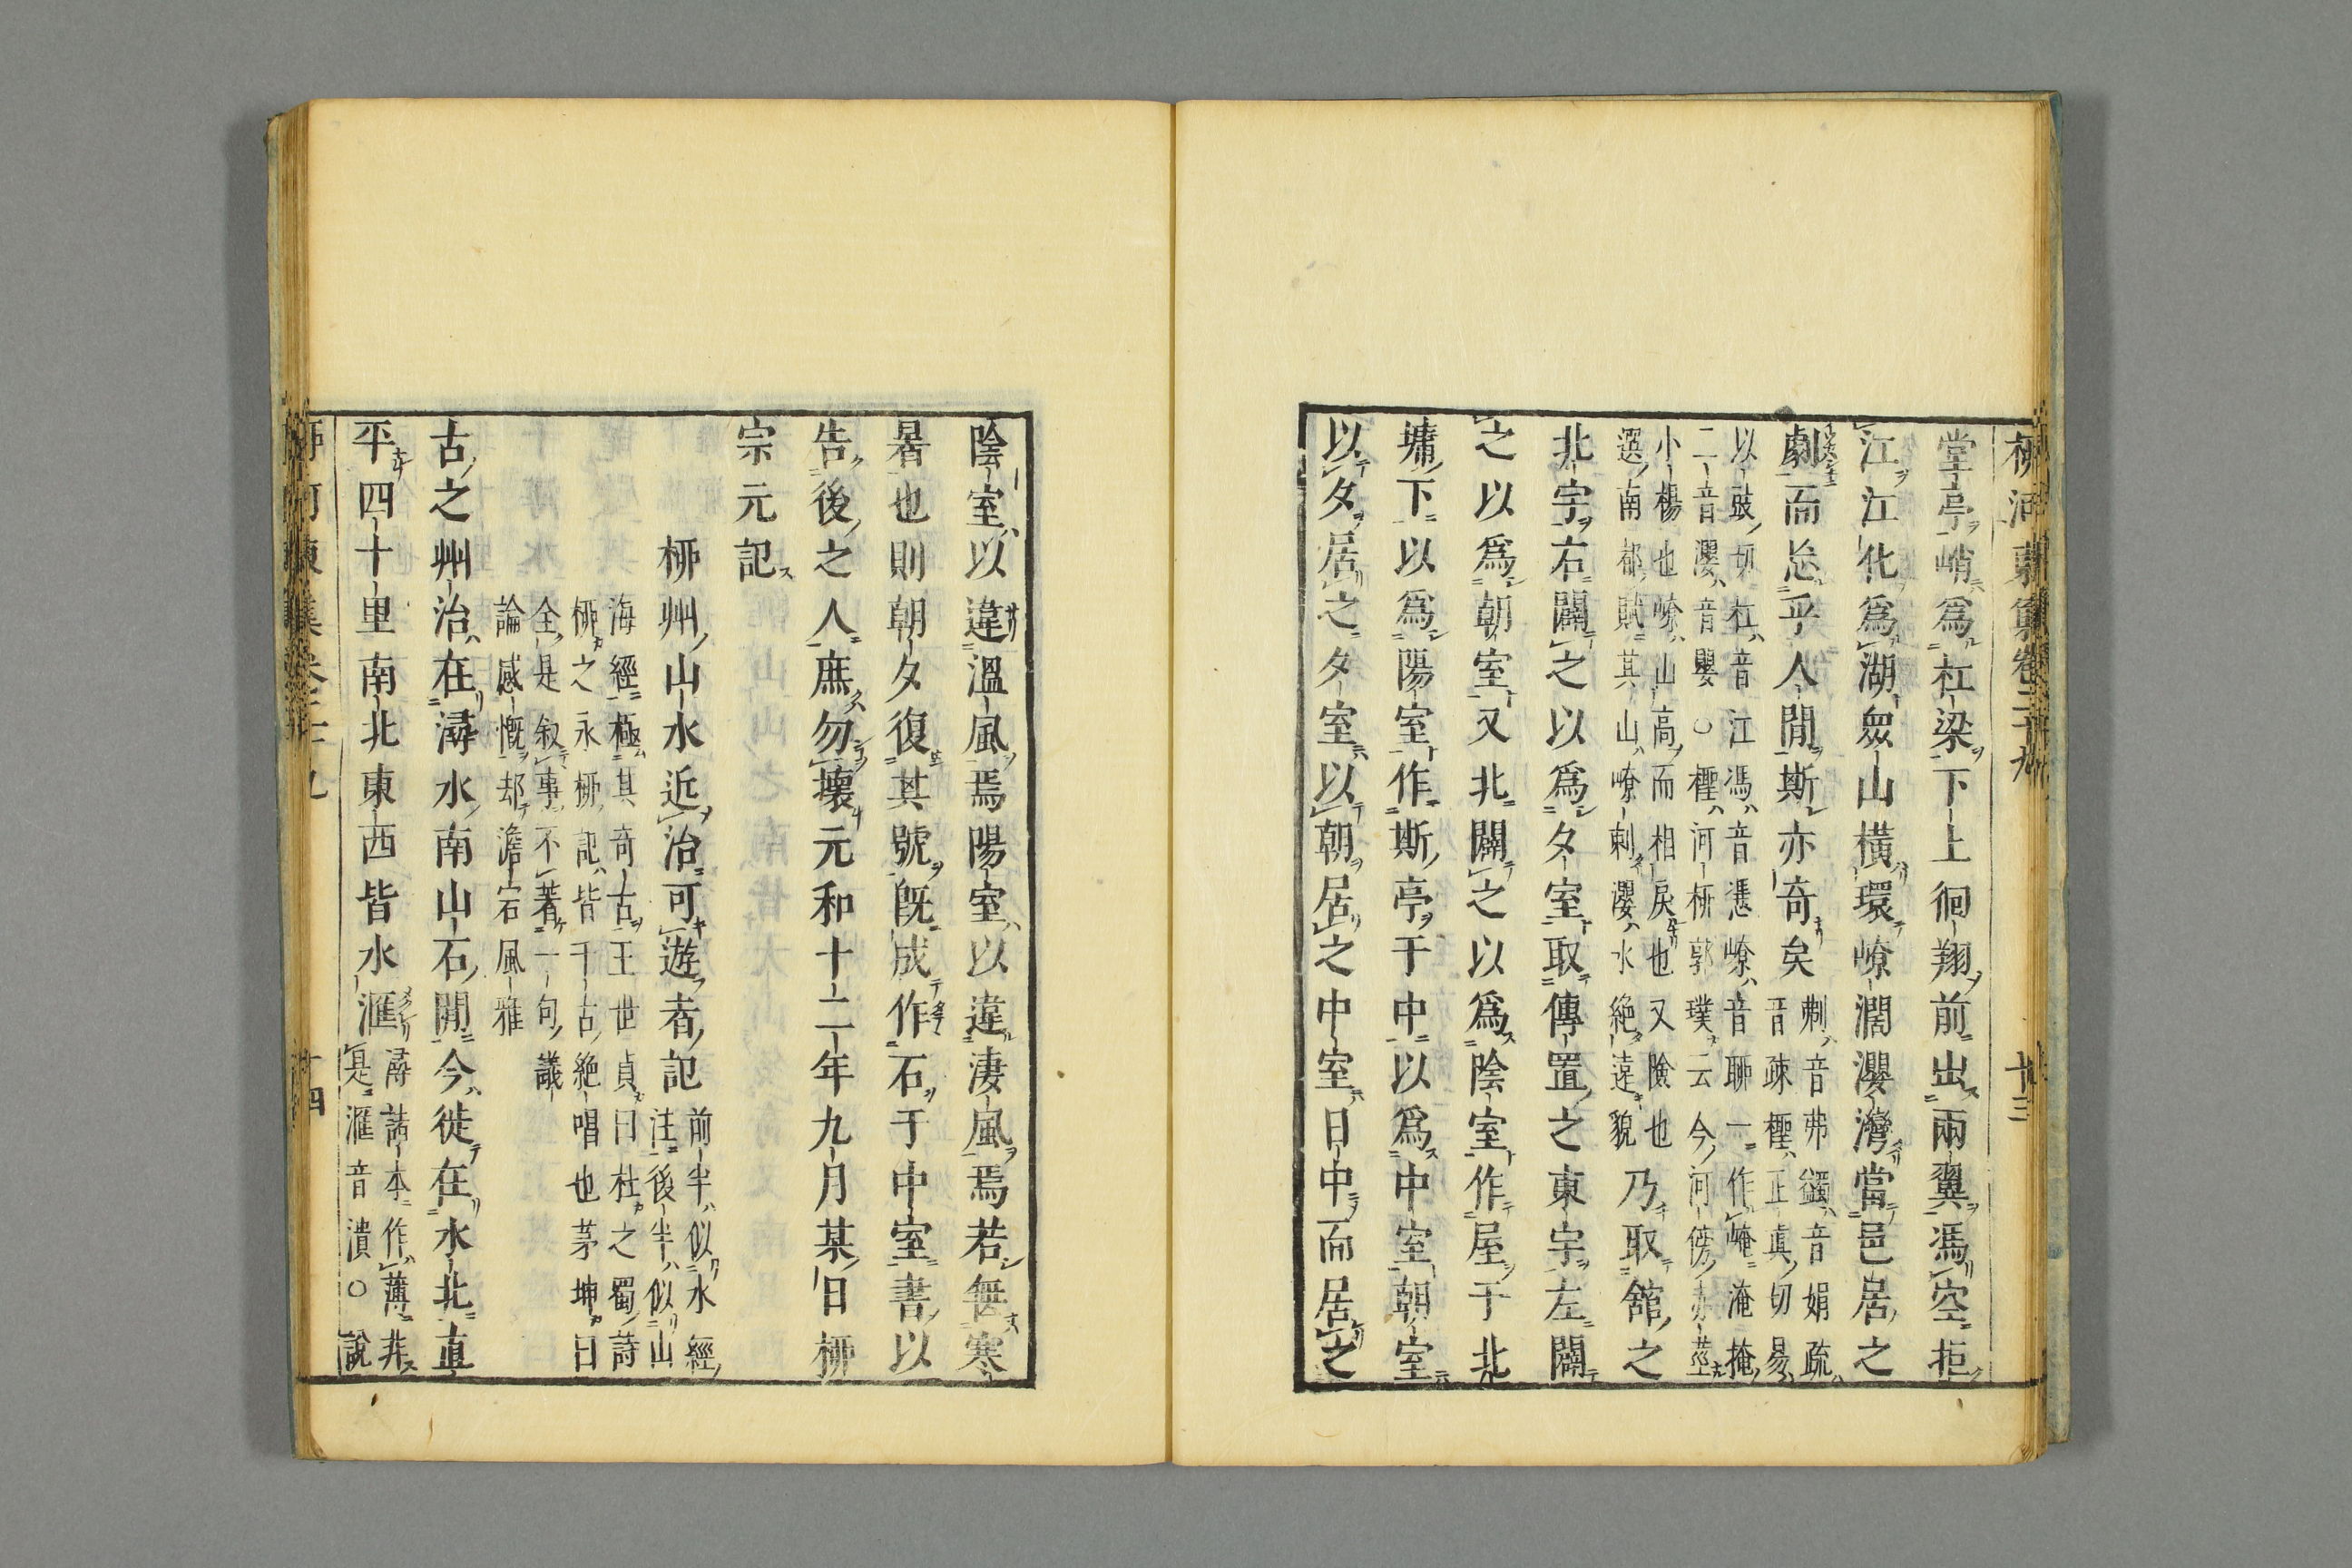 柳河東集卷二十九 十三
堂亭峭爲杠梁下上徊翔前出兩翼馮空拒
江江化爲湖衆山橫環嶛濶瀴灣當邑居之
劇而㤀乎人閒斯亦奇矣
刜音弗蠲音娟疏
音疎樫正眞切易
以豉切杠音江馮音憑嶛音聊一作崦淹掩
二音瀴音嬰○樫河柳郭璞云今河傍赤莖
小楊也嶛山高而相戾也又險也
選南都賦其山嶛剌瀴水絶遠貌
乃取舘之
北宇右闢之以爲夕室取傳置之東宇左闢
之以爲朝室又北闢之以爲陰室作屋于北
墉下以爲陽室作斯亭于中以爲中室朝室
以夕居之夕室以朝居之中室日中而居之
陰室以違溫風焉陽室以違淒風焉若無寒
暑也則朝夕復其號旣成作石于中室書以
告後之人庶勿壞元和十二年九月某日柳
宗元記
柳州山水近治可遊者記
前半似水經
注後半似山
海經極其奇古王世貞曰杜之蜀詩
柳之永柳記皆千古絶唱也茅坤曰
全是叙事不著一句議
論感慨却澹宕風雅
古之州治在潯水南山石閒今徙在水北直
平四十里南北東西皆水滙
潯諸本作薄非
是滙音潰○說
柳河東集卷二十九 十四